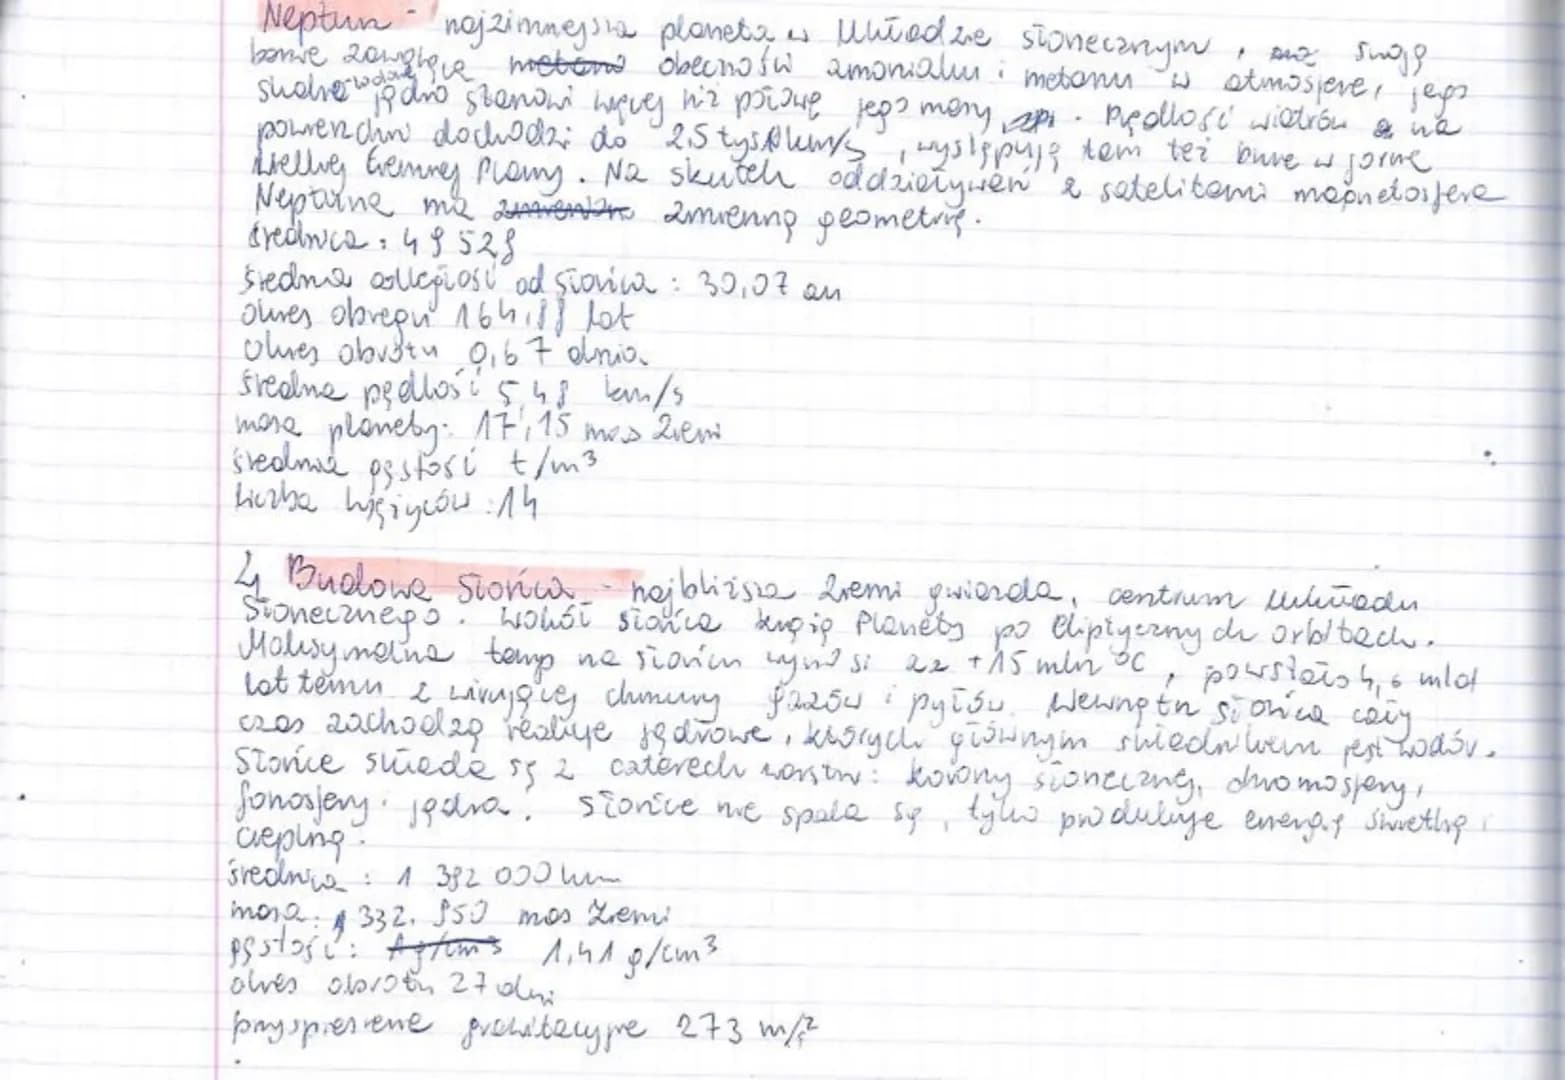 Neptun - najzimniejsza planeta w Układzie słonecznym, swoją
barwę zawdzięcza obecności amoniaku i metanu w atmosferze, jego
skalno wodne jądro stanowi więcej niż połowę jego masy. Prędkość wiatrów na
powierzchni dochodzi do 2,5 tys km/s, występują tam też burze w formie
Wielkiej Ciemnej Plamy. Na skutek oddziaływań z satelitami magnetosfera
Neptuna ma zmienną geometrię.
średnica: 49 528
średnia odległość od Słońca: 30,07 au
okres obiegu 164,88 lat
okres obrotu 0,67 dnia
średnia prędkość 5,48 km/s
masa planety: 17,15 mas Ziemi
średnia gęstość t/m³
liczba księżyców: 14
4 Budowa Słońca - najbliższa Ziemi gwiazda, centrum Układu
Słonecznego. Wokół słońca krążą Planety po eliptycznych orbitach.
Maksymalna temp na słońcu wynosi aż +15 mln °C, powstało 4,6 mld
lat temu z wirującej chmury gazów i pyłów. Wewnątrz słońca cały
czas zachodzą reakcje jądrowe, których głównym składnikiem jest wodór.
Słońce składa się z czterech warstw: korony słonecznej, chromosfery,
fonosfery i jądra. Słońce nie spala się, tylko produkuje energię świetlną i
cieplną.
średnica: 1 392 000 km
masa: 332. 950 mas Ziemi
gęstość: 1,41 g/cm³
okres obrotu 27 dni
przyspieszenie grawitacyjne 273 m/s²